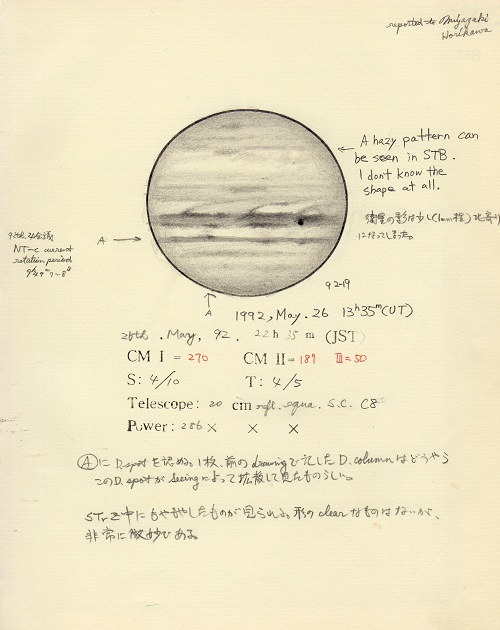 reported to Miyazaki
Horikawa
A hazy pattern can
be seen in STB.
I dont know the
shape at all.
衛星の影は少し(1mm程)北寄り
になってしまった。
NT-c current
rotation period
A
A
92-19
1992, May. 26 13h35m(UT)
26th. May, 92. 22h 35m (JST)
CM I = 270 CM II= 187 III=50
S: 4/10 T: 4/5
Telescope: 20 cm refl. equa. S.C. C8
Power: 286× × ×
Ⓐに D.spotを認める。1枚、前のdrawingで記したD.columnはどうやら
このD.spotがseeingによって拡散して見たものらしい。
STrZ中にもやもやしたものが見られる。形のclearなものはないが、
非常に微妙である。